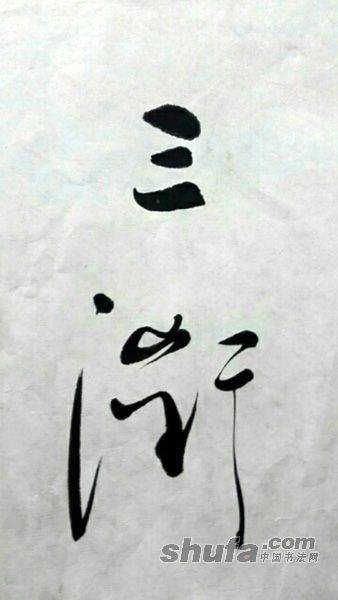 三
shufa.com
中国书法网